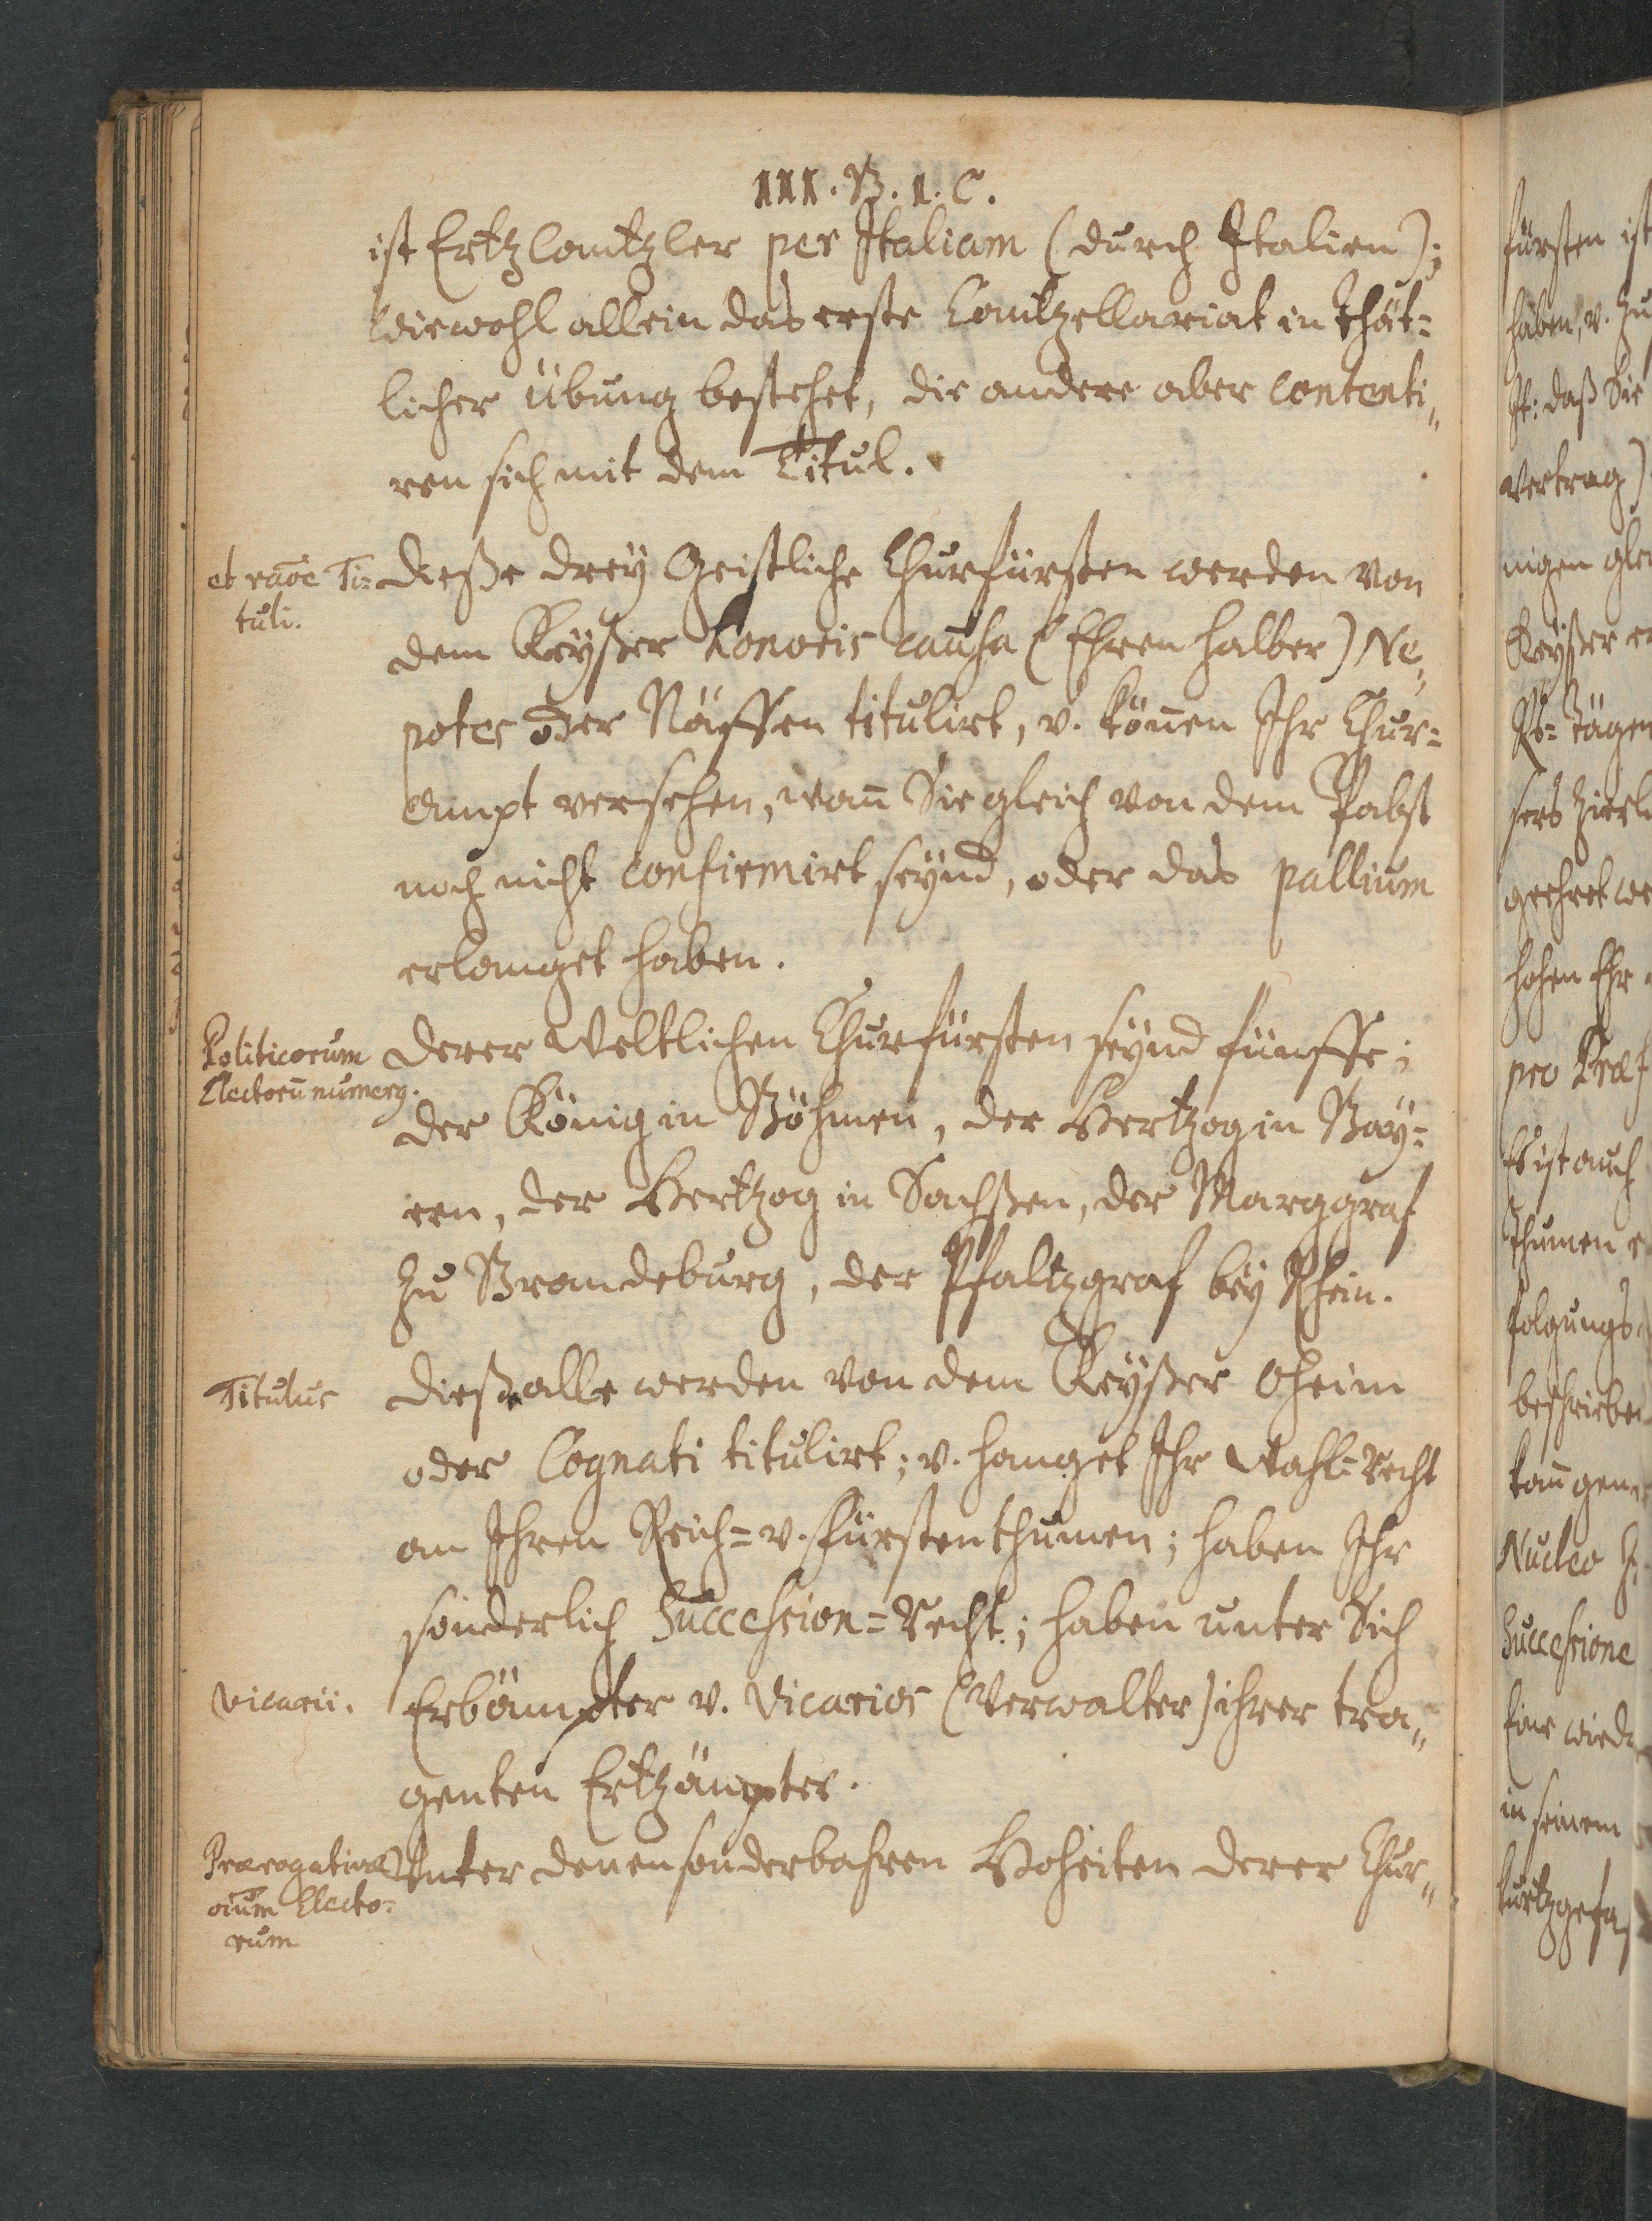 III. B. I. C.
ist Ertzcantzler per Italiam (durch Italien);
wiewohl allein das erste Cantzellariat in thät=
licher übung bestehet, die andere aber contenti„
ren sich mit dem Titul.
et raõe Ti=
tuli.
Dieße drey Geistliche Churfürsten werden von
dem Keyßer honoris caussa (Ehren halber) Ne„
potes oder Näffen titulirt, v. köñen Ihr Chur=
Ampt versehen, wañ Sie gleich von dem Pabst
noch nicht confirmirt seynd, oder das pallium
erlanget haben.
Politicorum
Electorũ numerg.
Derer Weltlichen Churfürsten seynd fünffe;
der König in Böhmen, der Hertzog in Bäy=
ern, der Hertzog in Sachßen, der Marggraf
zu Brandeburg, der Pfaltzgraf bey Rhein.
Titulus
Dieße alle werden von dem Keyßer Oheim
oder Cognati titulirt; v. hanget Ihr Wahl=Recht
an Ihren Reich= v. Fürstenthumen; haben Ihr
sonderlich Succession=Recht; haben unter Sich
Vicarii.
Erbämpter v. Vicarios (Verwalter) ihrer tra„
genten Ertzämpter.
Prærogativæ
oium Electo=
rum
Unter denen sonderbahren Hoheiten derer Chur„
fürsten ist
haben, v. zu
It: daß Sie
vertrag)
nigen
Keyßer
sers
geehret
hohen Ehr
pro
Es ist auch
thumen
folgungs
beschrieben
kañ
Nucleo
Successione
Eine
in seinem
kurtzgefa